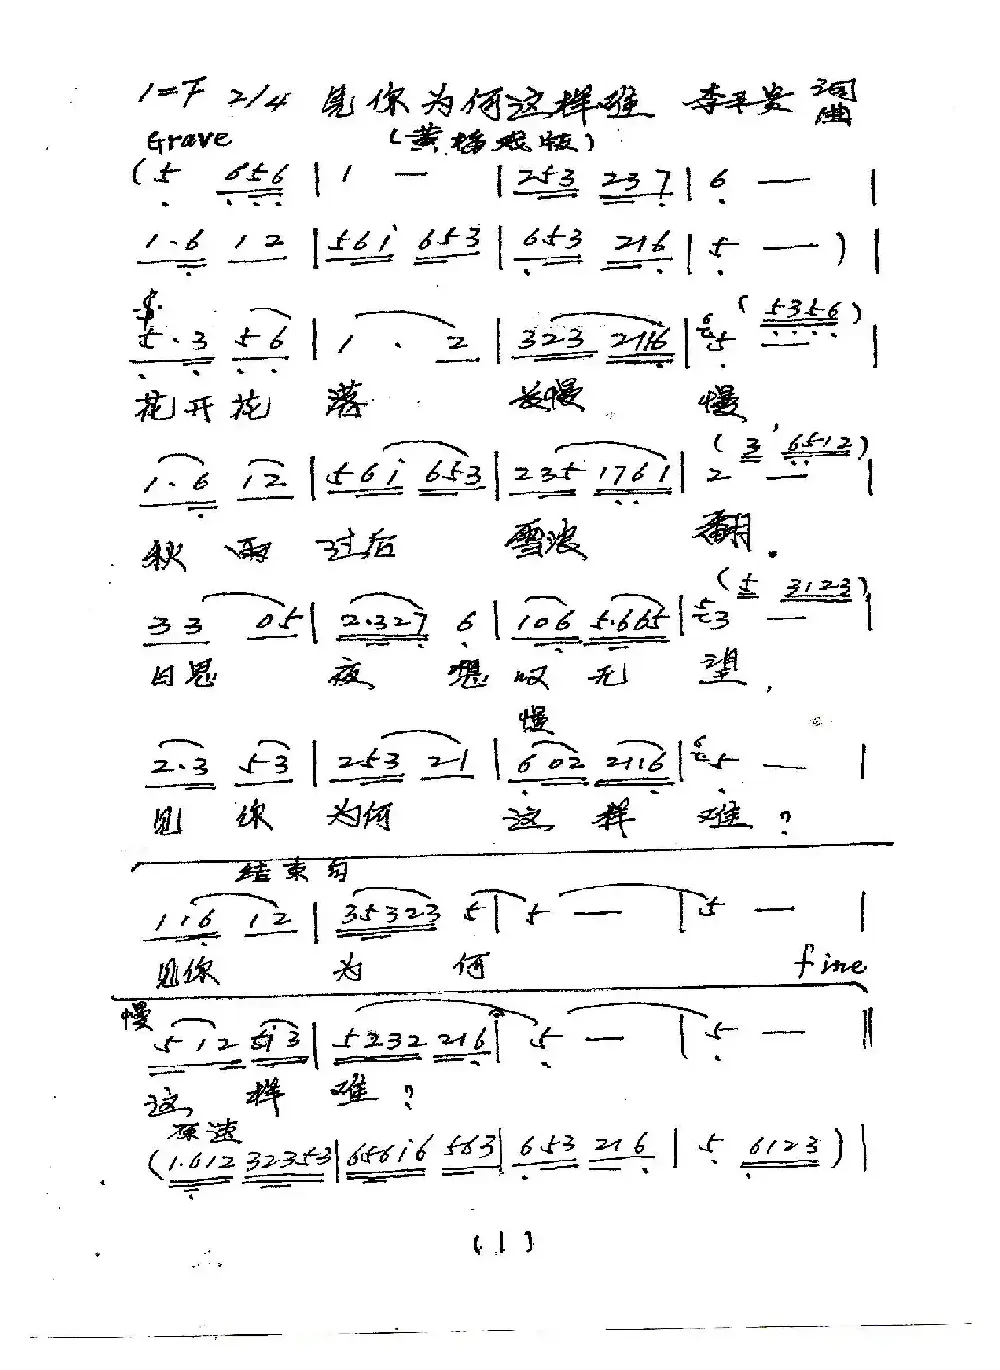 1=F 2/4 见你为何这样难 李平贵 词曲
Grave (黄梅戏版)
(5 656 | 1 — | 253 237 | 6 — |
1·6 12 | 561 653 | 653 216 | 5 — ) |
5·3 56 | 1 · 2 | 323 2116 | 5 — (5356) |
花开花 落 长慢 慢
1·6 12 | 561 653 | 235 1761 | 2 — (3 6512) |
秋雨 过后 雪浪 翻.
33 05 | 2·327 6 | 106 5·665 | 3 — (5 3123) |
日思 夜 想 叹无 望,
慢
2·3 53 | 253 21 | 602 2116 | 5 — |
见 你 为何 这 样 难?
结束句
116 12 | 35323 5 | 5 — | 5 — |
见你 为 何 fine
慢
512 513 | 5232 216 | 5 — | 5 — ‖
这 样 难?
原速
(1·612 32353 | 65616 563 | 653 216 | 5 6123 ) |
(1)